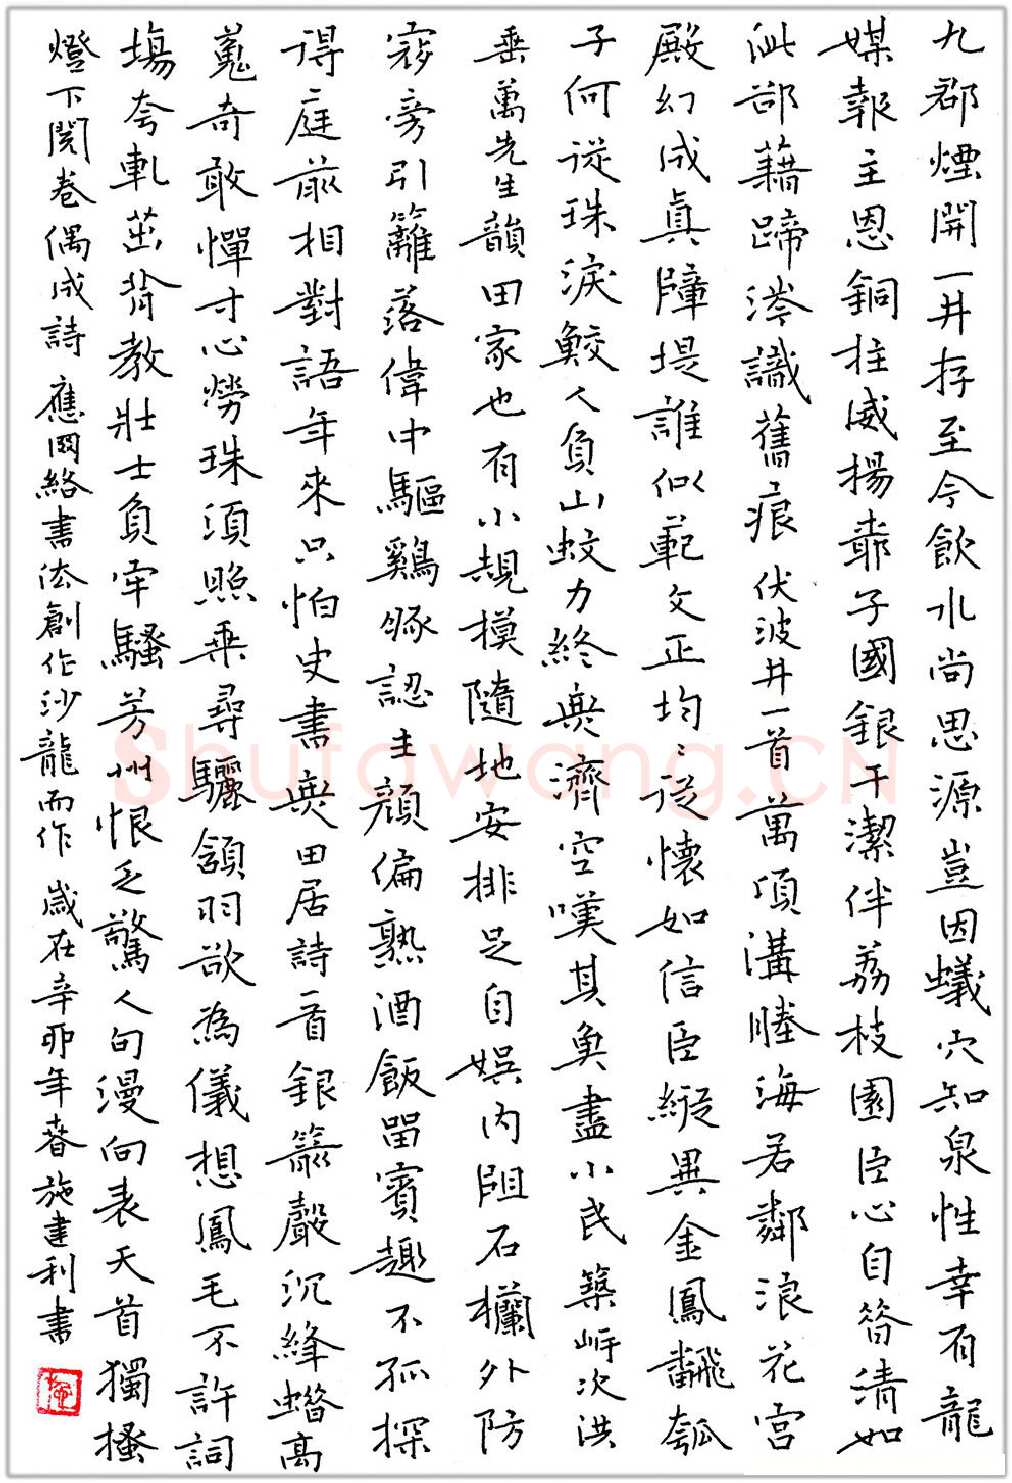 九郡煙開一井存至今飲水尚思源豈因蟻穴知泉性幸有龍
媒報主恩銅柱威揚靠子國銀干潔伴荔枝園臣心自答清如
泚部藉蹄涔識舊痕 伏波井一首萬頃溝塍海若鄰浪花宮
殿幻成真障堤誰似範文正均〻從懷如信臣縱異金鳳翻瓠
子何從珠淚鮫人負山蚊力終無濟空嘆其魚盡小民築圩次洪
垂萬先生韻田家也有小規模隨地安排足自娛内阻石欄外防
寇旁引籬落偉中驅鷄豚認主顏偏熟酒飯留賓趣不孤探
得庭前相對語年來只怕史書無田居詩一首銀箭聲沉絳蠟高
蒐奇敢憚寸心勞珠須照乘尋驪頷羽欲為儀想鳳毛不許詞
場夸軋茁肯教壯士負牢騷芳州恨乏驚人句漫向表天首獨搔
燈下閱卷偶成詩 應網絡書法創作沙龍而作 歲在辛卯年春施建利書
Shufawang.CN